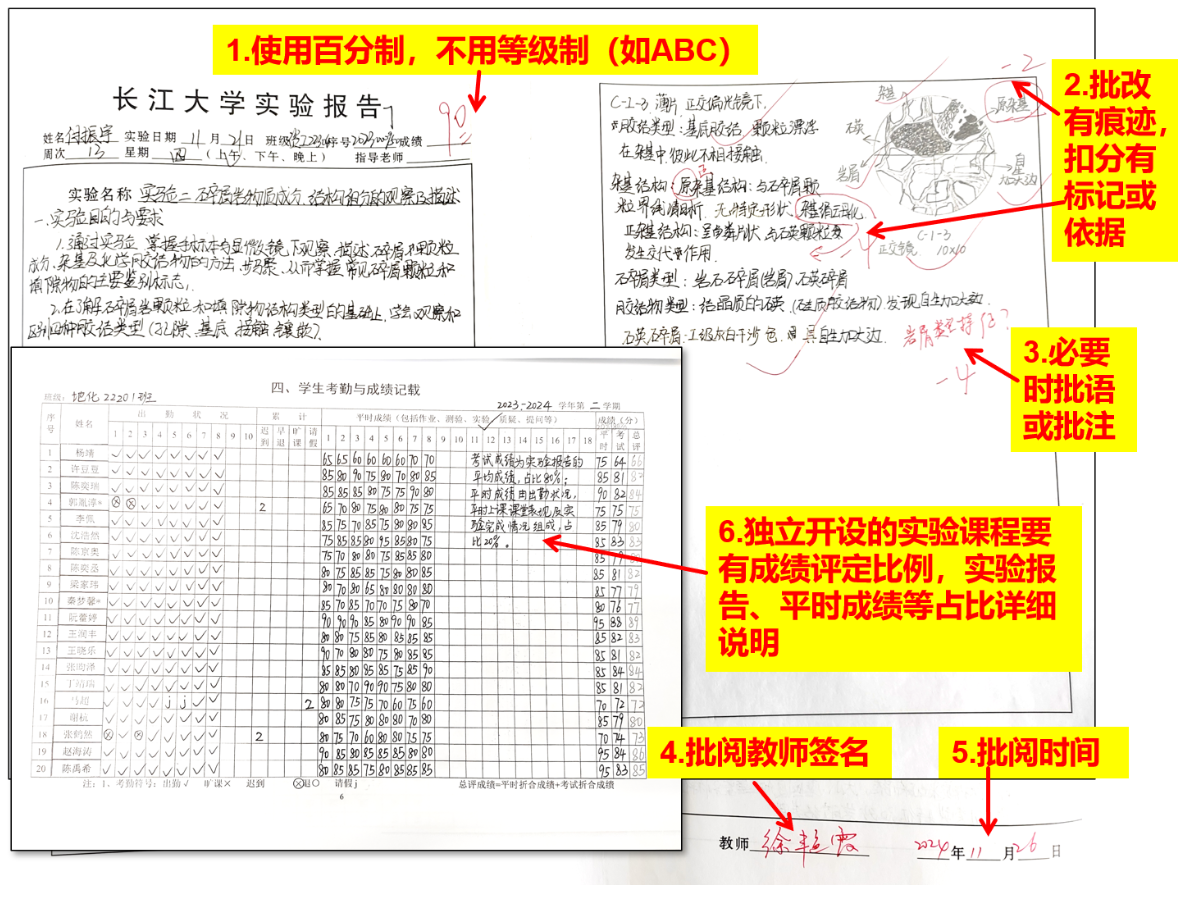 1.使用百分制，不用等级制（如ABC）
长江大学实验报告
90
姓名 付振宇 实验日期 11 月 21 日 班级 序号 成绩
周次 13 星期 四 （上午、下午、晚上） 指导老师
实验名称 实验二 碎屑岩物质成分、结构组分的观察及描述
一、实验目的与要求
1.通过实验，掌握手标本与显微镜下观察、描述碎屑颗粒
成分、杂基及化学胶结物的方法、步骤，从而掌握常见碎屑颗粒和
填隙物的主要鉴别标志。
2.在了解碎屑岩颗粒和填隙物结构类型的基础上，学会观察和
区别四种胶结类型（孔隙、基底、接触、镶嵌）
-2
C-1-3 薄片 正交偏光镜下.
胶结类型：基底胶结 颗粒漂浮
在杂基中彼此不相接触.
杂基结构：原杂基结构：与石屑颗
粒界线清晰，无特定形状、
正杂基结构：呈鳞片状 与石英颗粒
发生交代作用.
-4
杂基
原杂基
石英
岩屑
自生加大边
C-1-3
正交镜 10×10
碎屑类型：岩石碎屑(岩屑) 石英碎屑
胶结物类型：结晶质的石英 (硅质胶结物) 发现自生加大边.
自生加大边.
-4
2.批改
有痕迹，
扣分有
标记或
依据
3.必要
时批语
或批注
四、学生考勤与成绩记载
班级：地化22201班 2023-2024 学年第 二 学期
序号 姓名 出 勤 状 况 累 计 平时成绩（包括作业、测验、实验、质疑、提问等） 成绩（分）
1 2 3 4 5 6 7 8 9 10 迟到 早退 旷课 请假 1 2 3 4 5 6 7 8 9 10 11 12 13 14 15 16 17 18 平时 考试 总评
1 杨靖 65 65 60 60 60 60 70 70 75 64 66
2 许豆豆 85 80 90 75 80 70 80 85 85 81
3 陈奕瑞 85 85 85 80 75 75 90 80 90 82 84
4 2 65 70 80 75 80 80 75 75 75 75 75
5 李佩 85 75 70 85 75 80 80 85 85 79 80
6 沈浩然 75 85 85 80 95 85 80 75 85 83 83
7 陈富奥 75 70 80 80 75 85 85 80 85 79
8 陈奕丞 80 75 85 85 75 80 80 85 85 81 82
9 梁家玮 80 70 80 65 80 80 80 80 85 77 79
10 秦梦馨 85 70 85 70 70 75 80 70 80 76 77
11 阮馨婷 90 90 90 85 80 90 90 85 95 88 89
12 王润丰 80 80 75 85 80 85 85 85 85 82 83
13 王晓乐 90 70 80 80 75 80 85 85 85 81 82
14 张向泽 85 85 80 85 85 75 85 90 85 84 84
15 80 80 70 90 90 75 80 80 85 81 82
16 马超 2 80 80 75 75 70 60 75 60 70 72 72
17 胡杭 80 85 75 80 80 80 70 80 85 79 80
18 张鹤然 2 80 75 70 60 80 80 75 70 70 74 73
19 赵海涛 90 85 80 85 85 85 80 80 95 84 86
20 陈禹希 80 85 85 75 80 85 85 80 95 83 85
考试成绩为实验报告的
平均成绩，占比80%；
平时成绩由出勤状况，
平时上课课堂表现及实
验完成情况组成，占
比20%。
注：1、考勤符号：出勤√ 旷课× 迟到 请假j 总评成绩=平时折合成绩+考试折合成绩
6
6.独立开设的实验课程要
有成绩评定比例，实验报
告、平时成绩等占比详细
说明
4.批阅教师签名
5.批阅时间
教师 徐艳霞 2024 年 11 月 26 日